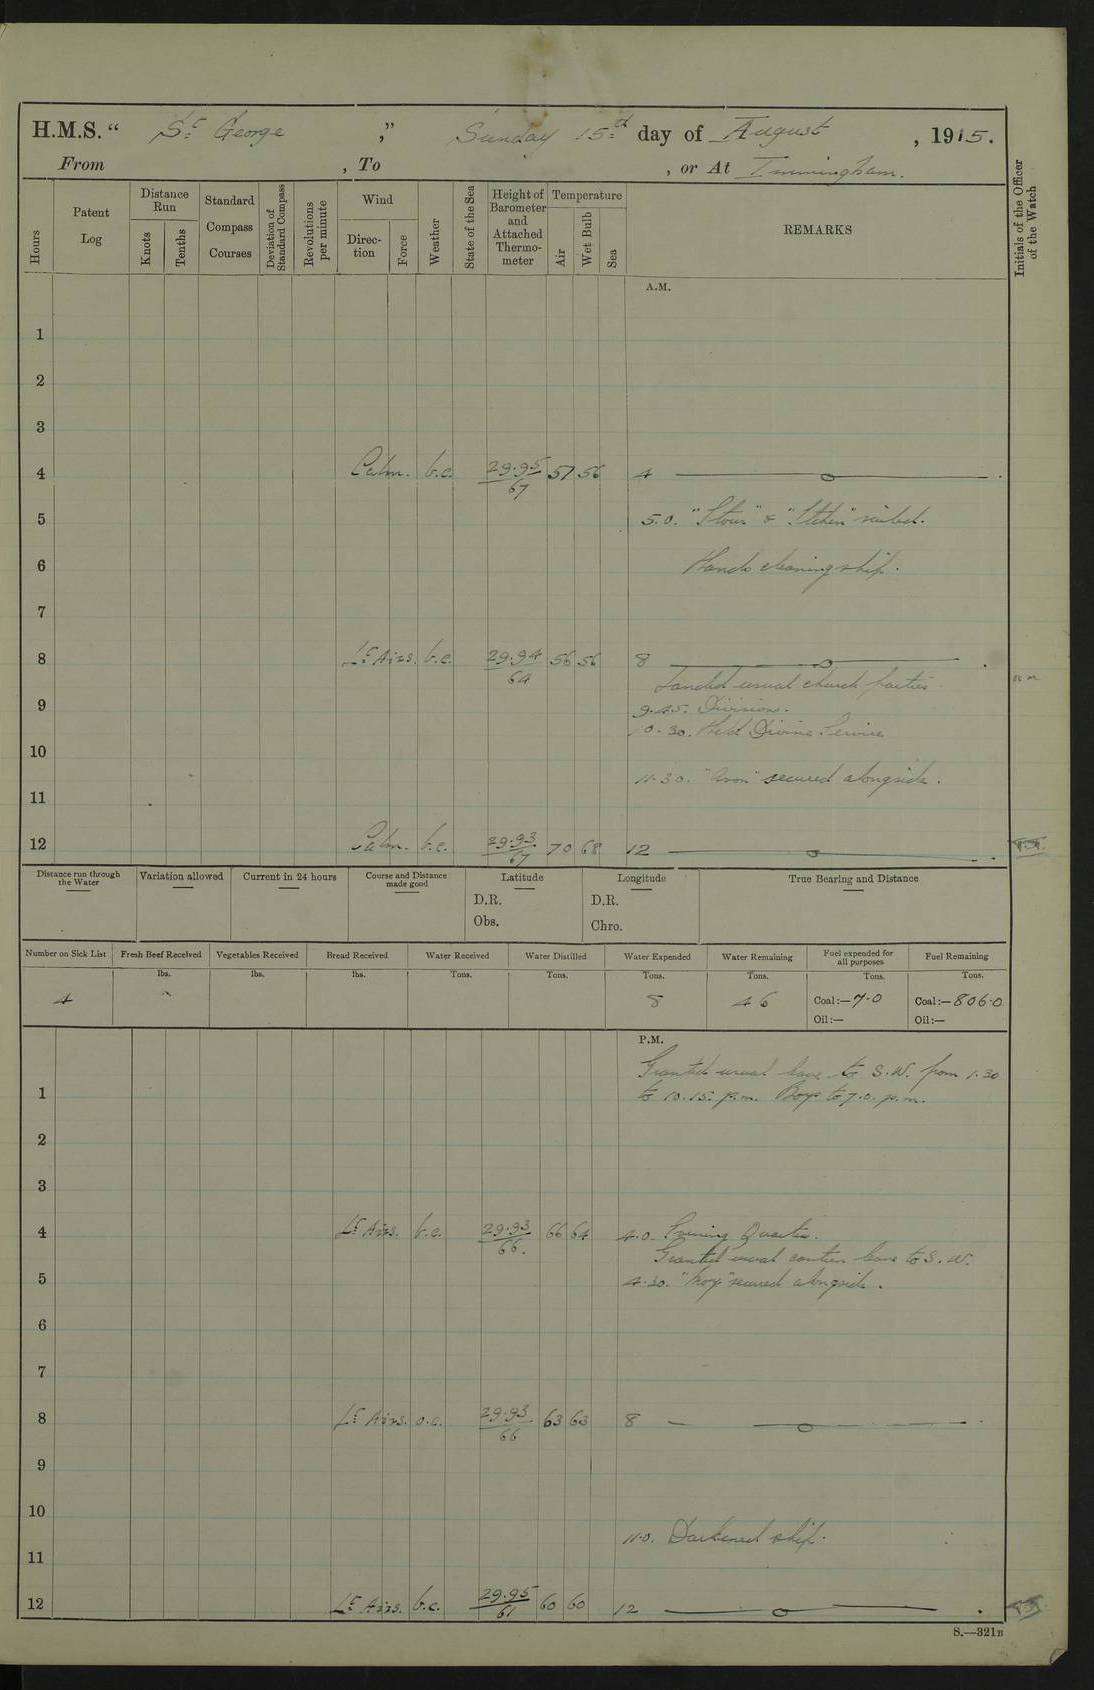 H.M.S. “ St George ,” Sunday 15th day of August , 1915.
From , To , or At Immingham.
Hours
Patent Log
Distance Run
Knots
Tenths
Standard Compass Courses
Deviation of Standard Compass
Revolutions per minute
Wind
Direction
Force
Weather
State of the Sea
Height of Barometer and Attached Thermometer
Temperature
Air
Wet Bulb
Sea
REMARKS
Initials of the Officer of the Watch
A.M.
1
2
3
4 Calm. b.c. 29.95/67 57 56 4
5 5.0. "Stour" & "Itchen" sailed.
6 Hands cleaning ship.
7
8 Lt Airs. b.c. 29.94/64 56 56 8
Landed usual church parties
9 9.45. Divisions.
10.30. Held Divine Service
10
11.30. "Avon" secured alongside.
11
12 Calm. b.c. 29.93/67 70 68 12
Distance run through the Water
Variation allowed
Current in 24 hours
Course and Distance made good
Latitude
D.R.
Obs.
Longitude
D.R.
Chro.
True Bearing and Distance
Number on Sick List
Fresh Beef Received
Vegetables Received
Bread Received
Water Received
Water Distilled
Water Expended
Water Remaining
Fuel expended for all purposes
Fuel Remaining
lbs. lbs. lbs. Tons. Tons. Tons. Tons. Tons. Tons.
4 8 46 Coal:— 7.0 Coal:— 806.0
Oil:— Oil:—
P.M.
Granted usual leave to S.W. from 1.30
1 to 10.15. p.m. Boys to 7.0. p.m.
2
3
4 Lt Airs. b.c. 29.93/66. 66 64 4.0 Evening Quarters.
Granted usual canteen leave to S.W.
5 4.30. "Moy" secured alongside.
6
7
8 Lt Airs. o.c. 29.93/66 63 63 8
9
10
11.0. Darkened ship.
11
12 Lt Airs. b.c. 29.95/61 60 60 12
S.—321B